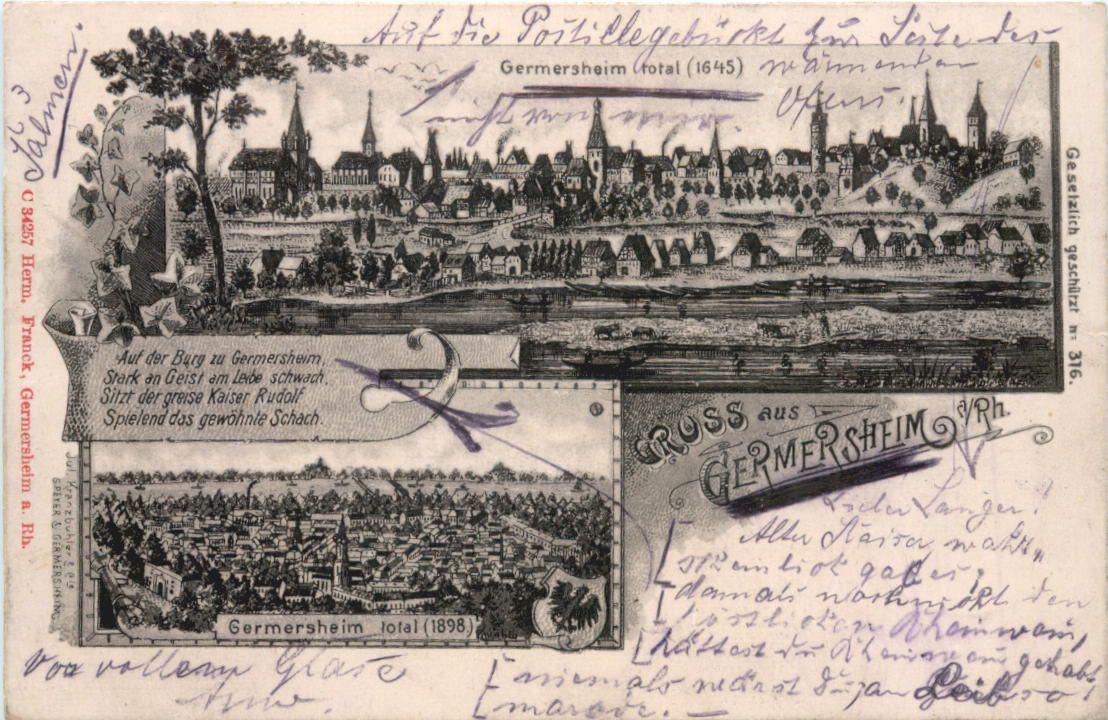 Auf die Postille gebückt zur Seite des
wärmenden
Ofens.
nicht von
Germersheim total (1645)
Gesetzlich geschützt № 316.
C 34257 Herm. Franck, Germersheim a. Rh.
Auf der Burg zu Germersheim,
Stark an Geist am Leibe schwach,
Sitzt der greise Kaiser Rudolf
Spielend das gewöhnte Schach.
GRUSS aus
GERMERSHEIM a/Rh.
Jul. Kranzbühler & Cie
SPEYER & GERMERSHEIM
Germersheim total (1898)
Lieber Langer!
Alter Kaiser, wahr„
scheinlich gab es
damals noch nicht den
köstlichen Rheinwein,
hättest du Rheinwein gehabt
niemals wärst du an Leib so
marode. —
Vor vollem Glase